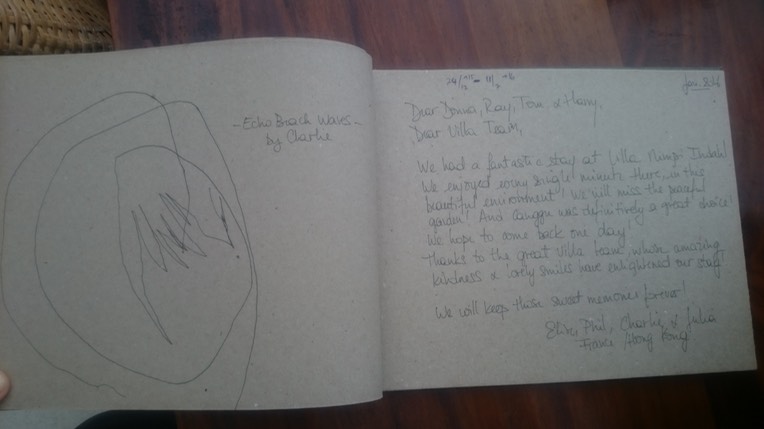 - Echo Beach Waves -
by Charlie
Dear Donna, Ray, Tom, & Harry,
Dear Villa Team,
We had a fantastic stay at Villa Mimpi Indah!
We enjoyed every single minute there, in this
beautiful environment! We will miss the peaceful
garden! And Canggu was definitively a great choice!
We hope to come back one day.
Thanks to the great Villa team whose amazing
kindness & lovely smiles have enlightened our stay!
We will keep these sweet memories forever!
Phil, Charlie, & Julia
France / Hong Kong